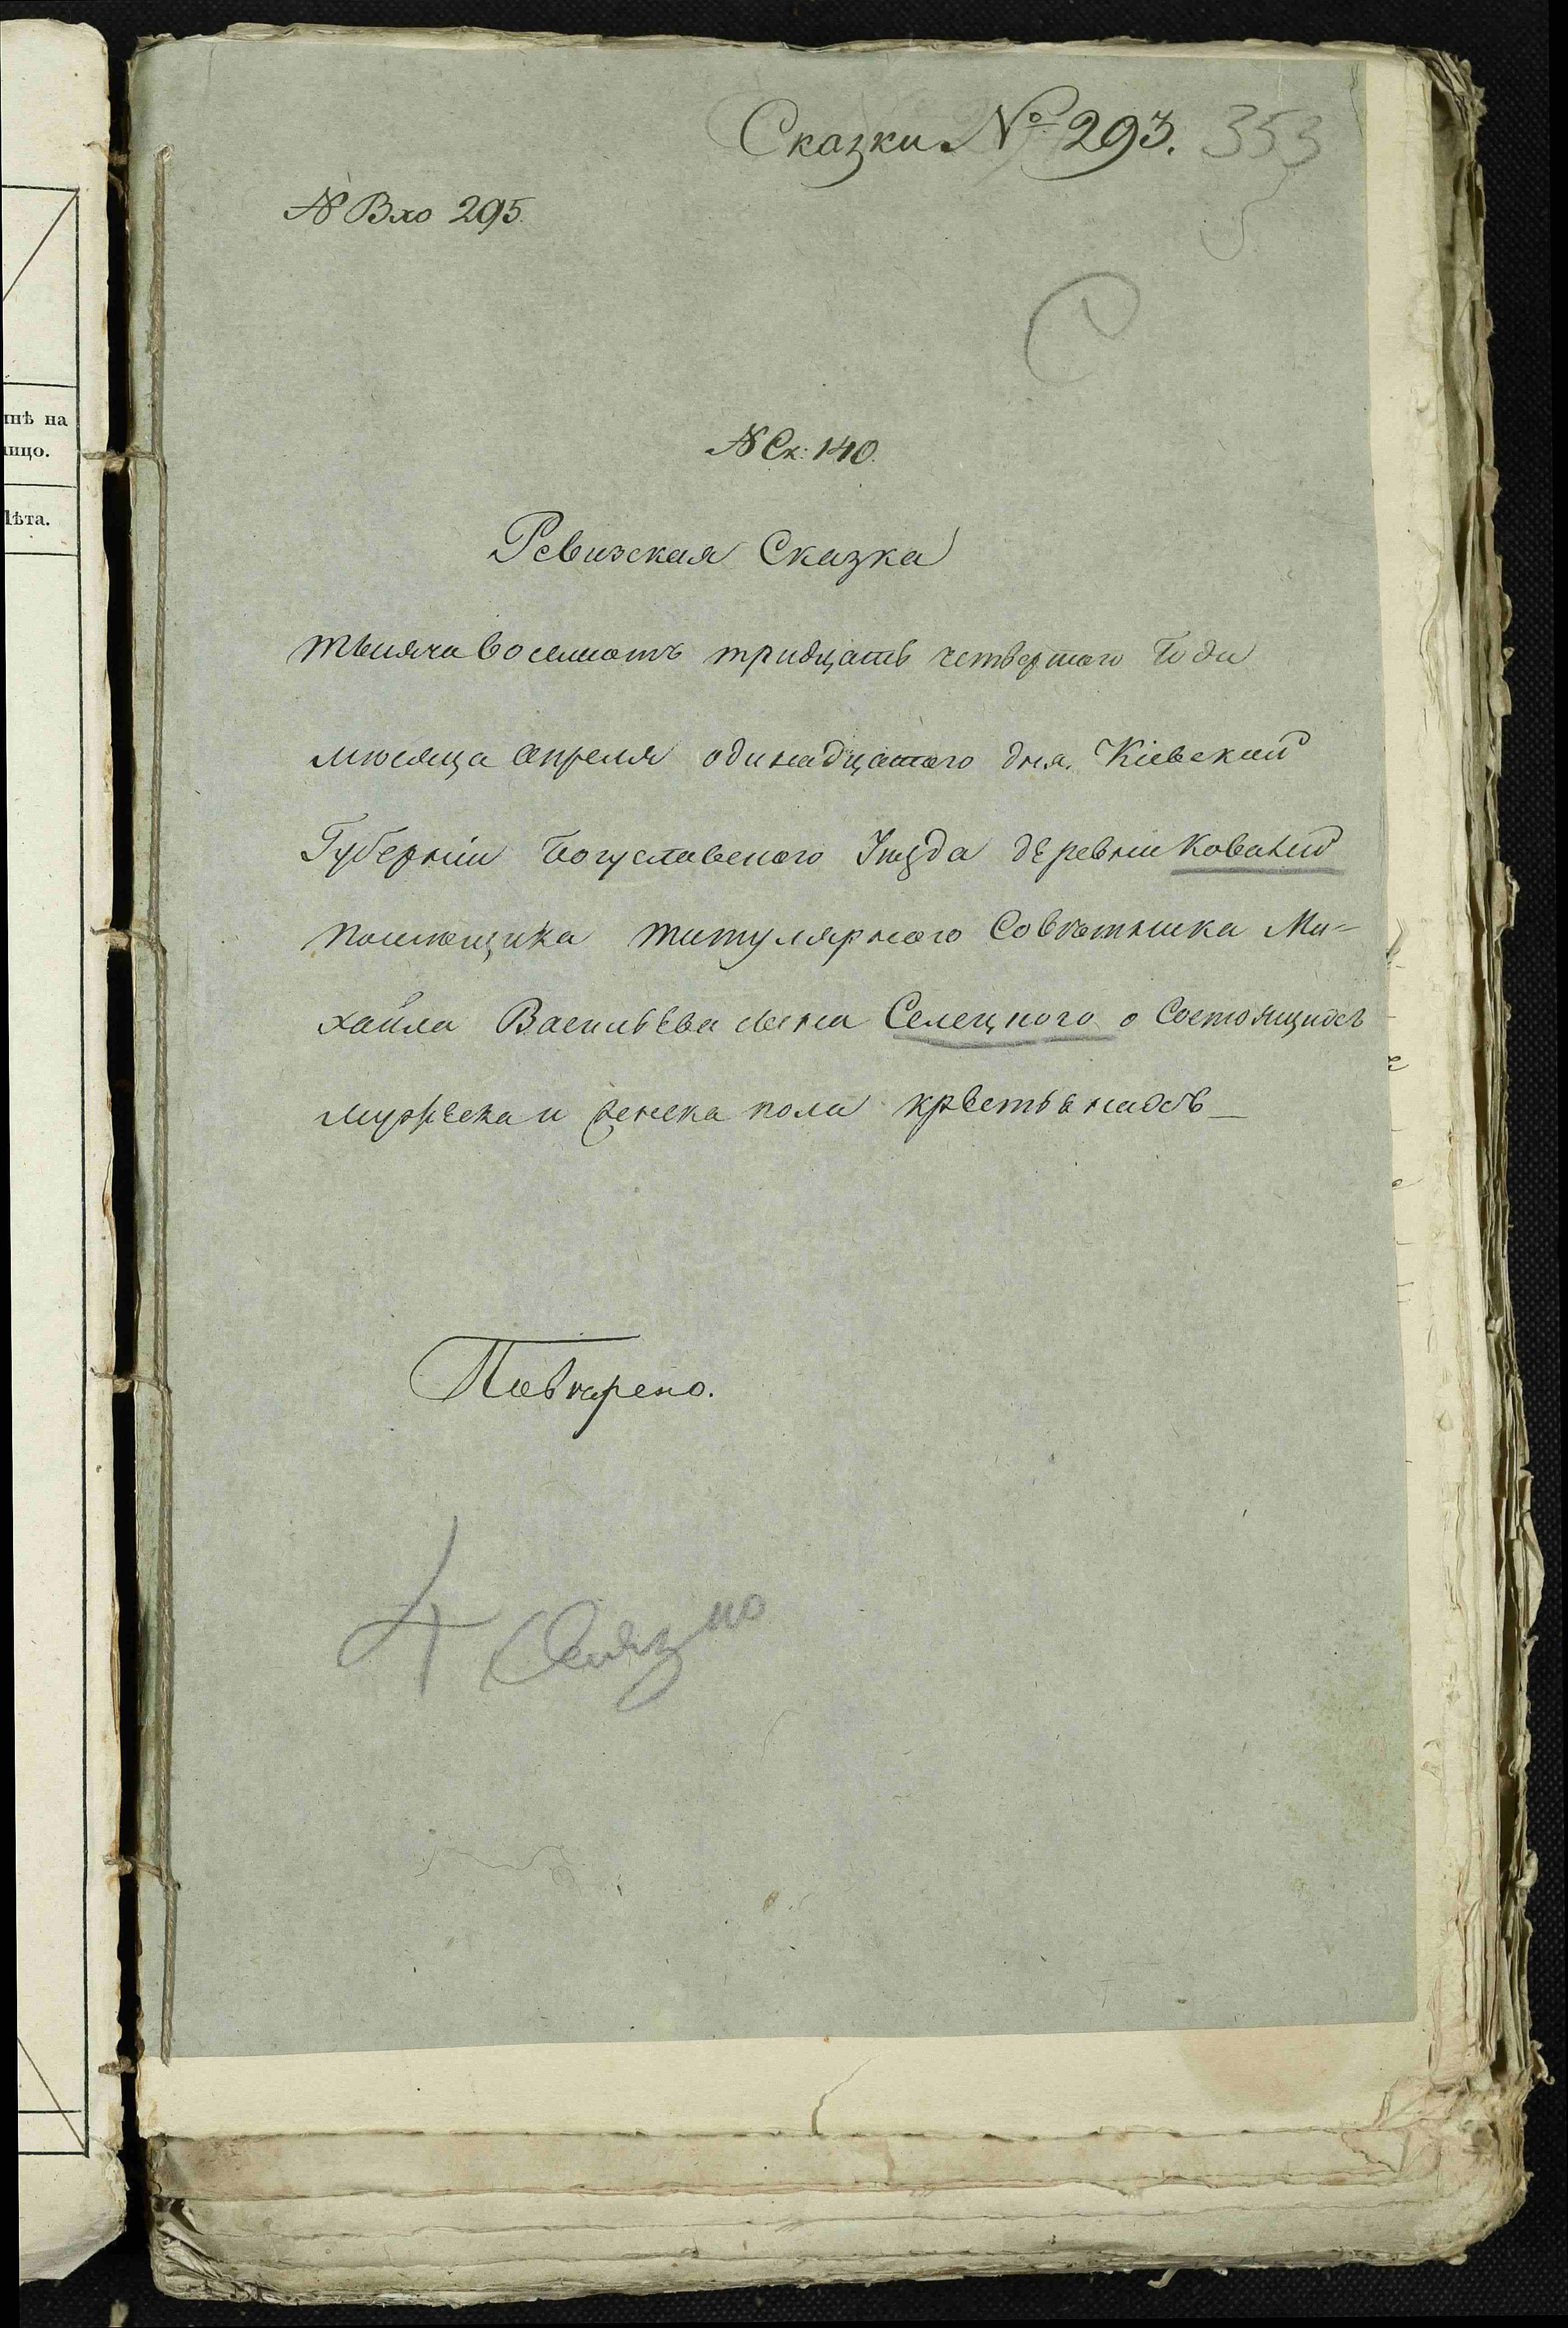 Сказки № 293. 353
№ Вхо 295.
С
№ Ск: 140.
Ревизская Сказка
тысяча восемьсотъ тридцать четвертаго Года
мѣсяца Апреля одинадцатого дня. Кіевской
Губерніи Богуславского Уѣзда деревни Кованой
помѣщика титулярного Совѣтника Ми=
хайла Васильева сына Селецкого о Состоящихъ
мужеска и женска пола крестьянахъ
Повѣрено.
инѣ на
лицо.
Лѣта.